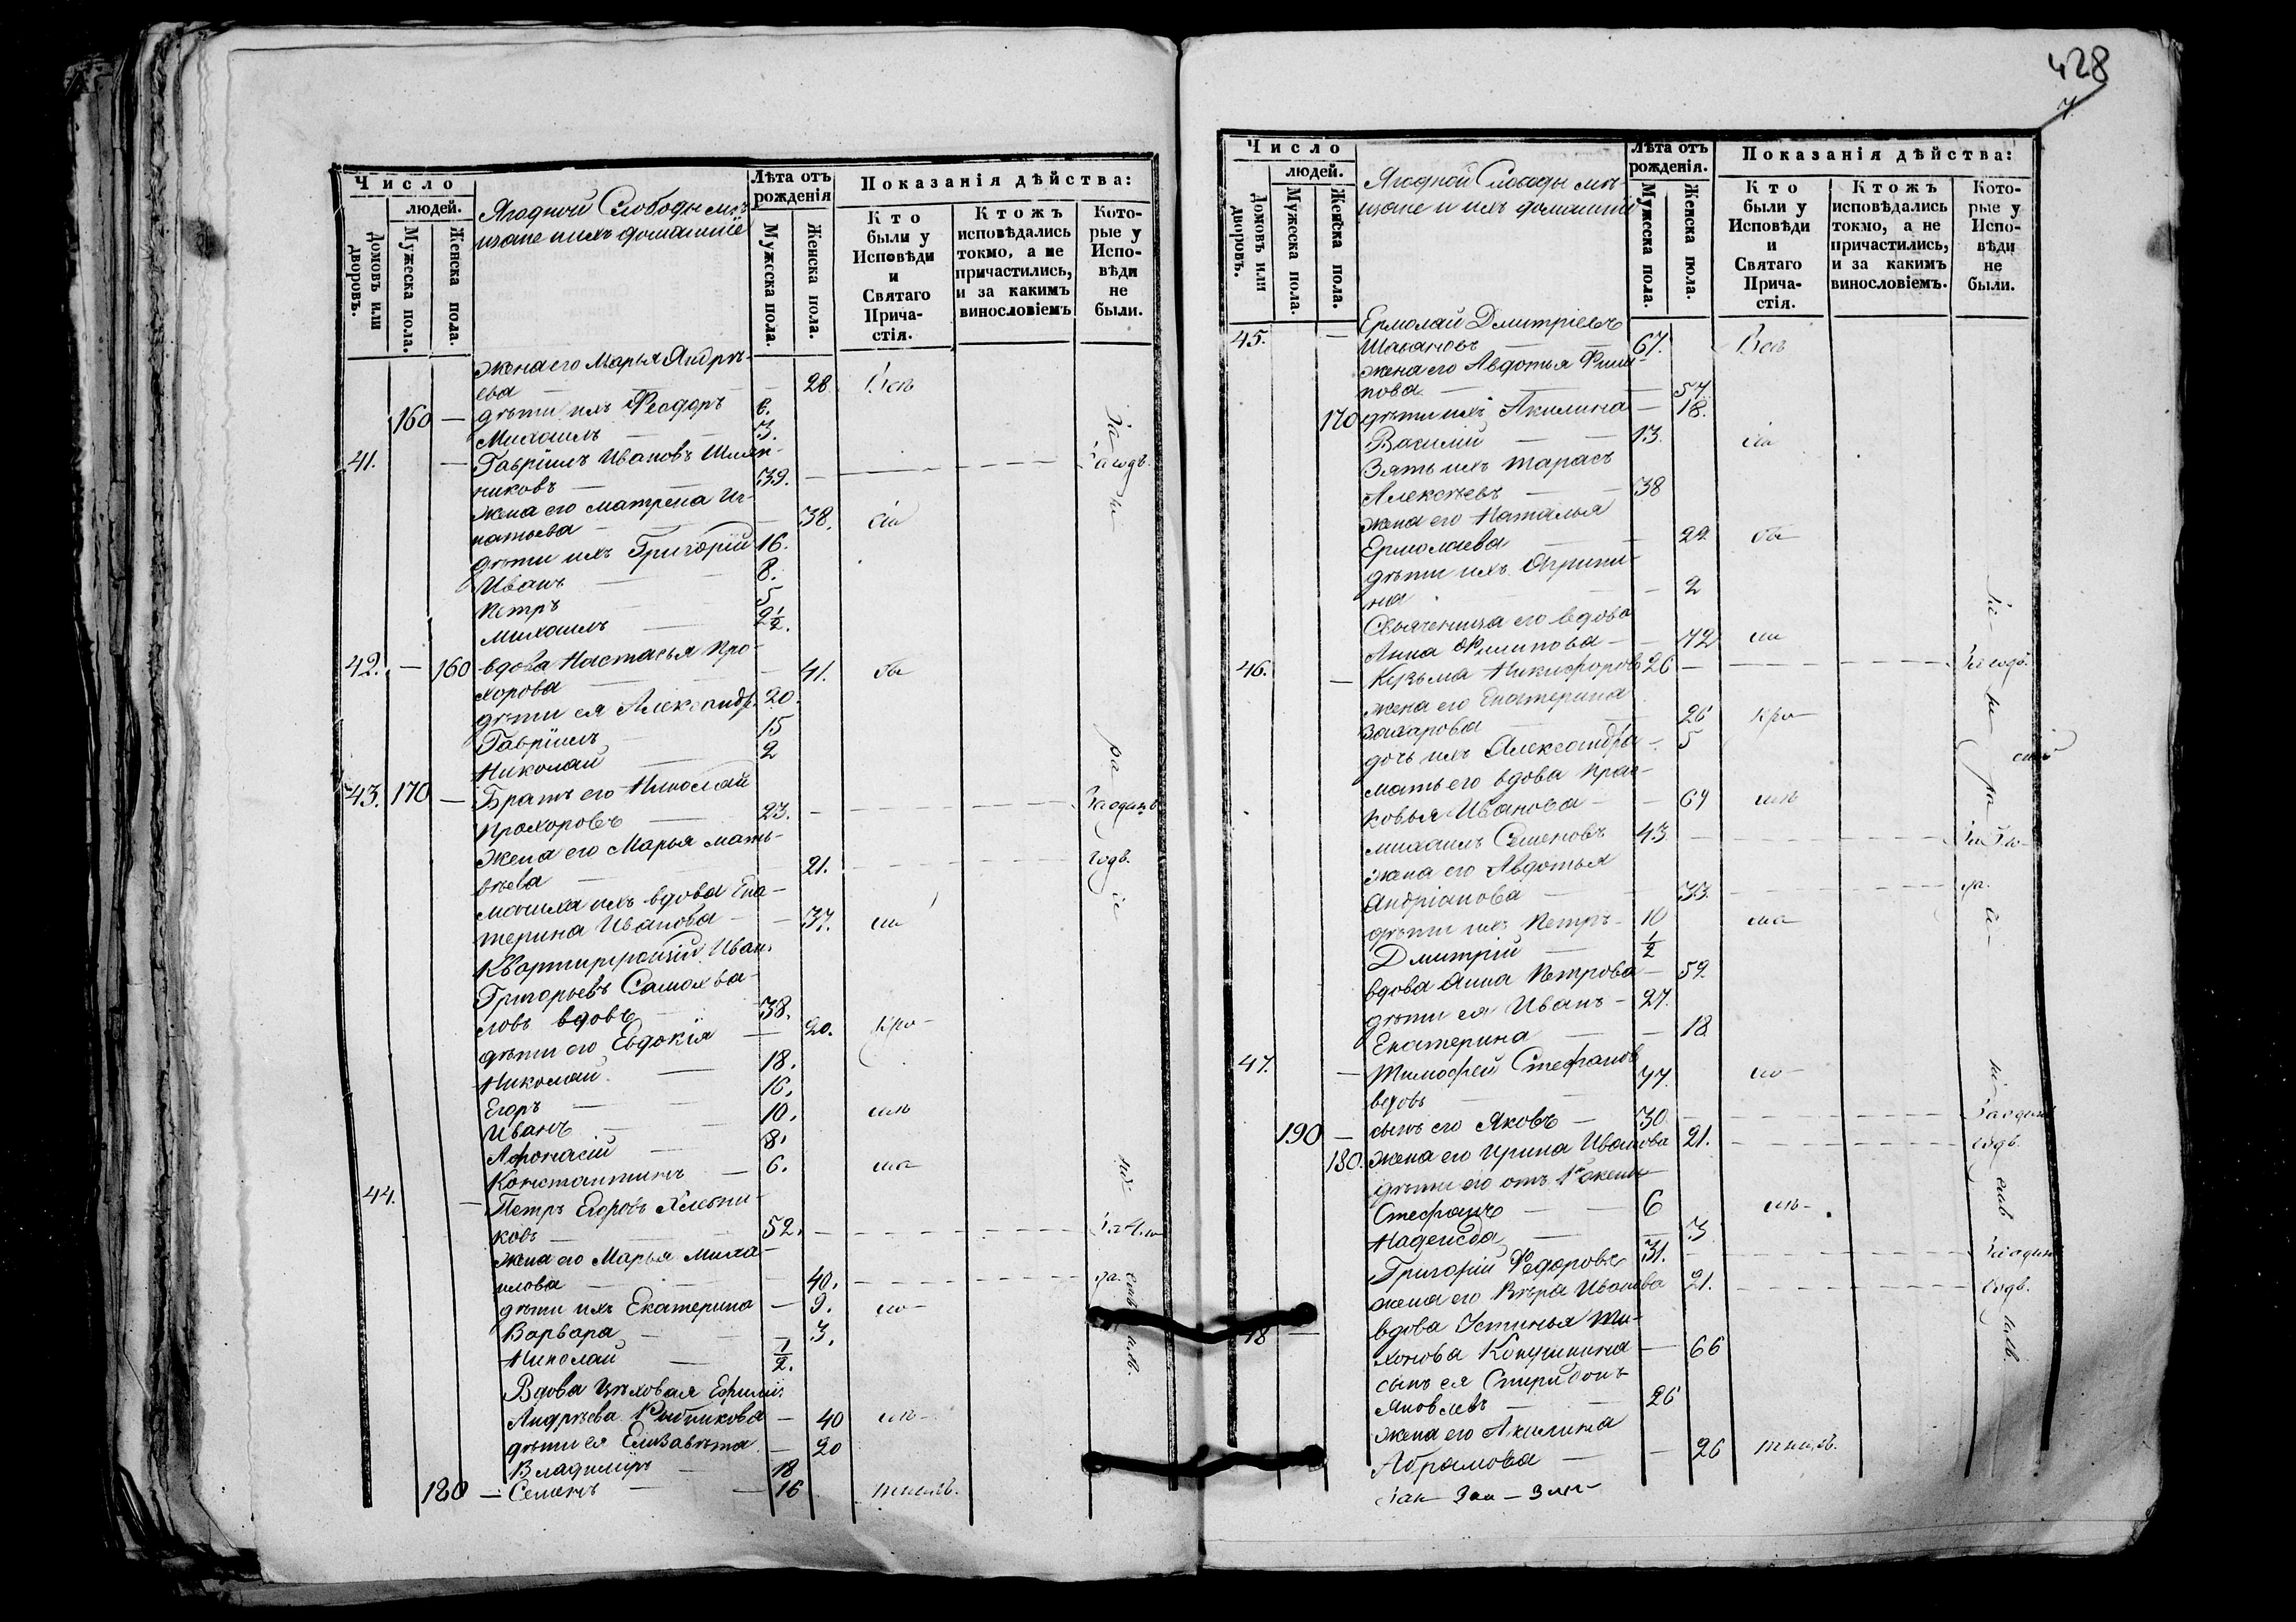 428
7.
Число
людей.
Домовъ или дворовъ.
Мужеска пола.
Женска пола.
Ягодной Слободы мѣ-
щане и ихъ домашніе
Лѣта отъ рожденія
Мужеска пола.
Женска пола.
Показанія дѣйства:
Кто были у Исповѣди и Святаго Прича-стія.
Ктожъ исповѣдались токмо, а не причастились, и за какимъ винословіемъ
Кото-рые у Испо-вѣди не были.
жена его Марья Андрѣ-
ева — 28 Всѣ
160 — дѣти ихъ Феодоръ 6.
Михаилъ 3.
41. — Гавріилъ Ивановъ
никовъ 39. — За годъ.
жена его Матрена Иг-
натьева 38.
дѣти ихъ Григорій 16.
Иванъ 8.
Петръ 5
Михаилъ 2 1/2.
42. — 160 вдова Настасья Про-
хорова — 41.
дѣти ея Александръ 20.
Гавріилъ 15
Николай 2
43. 170 — Братъ его Николай
Прохоровъ 23. — За одинъ
жена его Марья Матъ-
вѣева 21. — годъ.
мачиха ихъ вдова Ека-
терина Иванова — 37.
Квартирующій Иванъ
Григорьевъ Самохва-
ловъ вдовъ 38.
дѣти его Евдокія — 20.
Николай 18.
Егоръ 16.
Иванъ 10.
Афонасій 8.
Константинъ 6.
44. — Петръ Егоровъ Хлебни-
ковъ 52.
жена его Марья Миха-
илова 40.
дѣти ихъ Екатерина — 9.
Варвара — 3.
Николай 1/2.
Вдова Цѣховая Ефимія
Андрѣева Рыбникова — 40
дѣти ея Елизавѣта — 20
Владимиръ 18
180 — Семенъ — 16
Число
людей.
Домовъ или дворовъ.
Мужеска пола.
Женска пола.
Ягодной Слободы мѣ-
щане и ихъ домашніе
Лѣта отъ рожденія.
Мужеска пола.
Женска пола.
Показанія дѣйства:
Кто были у Исповѣди и Святаго Прича-стія.
Ктожъ исповѣдались токмо, а не причастились, и за какимъ винословіемъ.
Кото-рые у Испо-вѣди не были.
45. — Ермолай Дмитріевъ
67. Всѣ
жена его Авдотья Фили-
пова — 57.
170 дѣти ихъ Акилина — 18.
Василий — 13.
Зять ихъ Тарасъ
Алексѣевъ — 38
жена его Наталья
Ермолаева — 22
дѣти ихъ Агрипи-
на — 2
Свояченица его вдова
Анна Филипова — 72
46. — Кузьма Никифоровъ 26 — За годъ.
жена его Екатерина
Захарова 26
дочь ихъ Александра — 5
мать его вдова Прас-
ковья Иванова — 64
Михаилъ Семеновъ 43
жена его Авдотья
Андріанова 33.
дѣти ихъ Петръ — 10
Дмитрій 1/2
вдова Анна Петрова — 52
дѣти ея Иванъ — 27.
Екатерина — 18
47. — Тимофей Стефановъ
вдовъ 77.
190 — сынъ его Яковъ — 30 — За одинъ
180. жена его Ирина Иванова 21. — годъ.
дѣти его отъ 1й жены
Стефанъ — 6
Надежда — 3
Григорій Федоровъ 31. — За одинъ
жена его Вѣра Иванова 21. — годъ.
вдова Устинья Ти-
хонова — 66
сынъ ея Спиридонъ
Яковлевъ — 26
жена его Акилина
Абрамова — 26